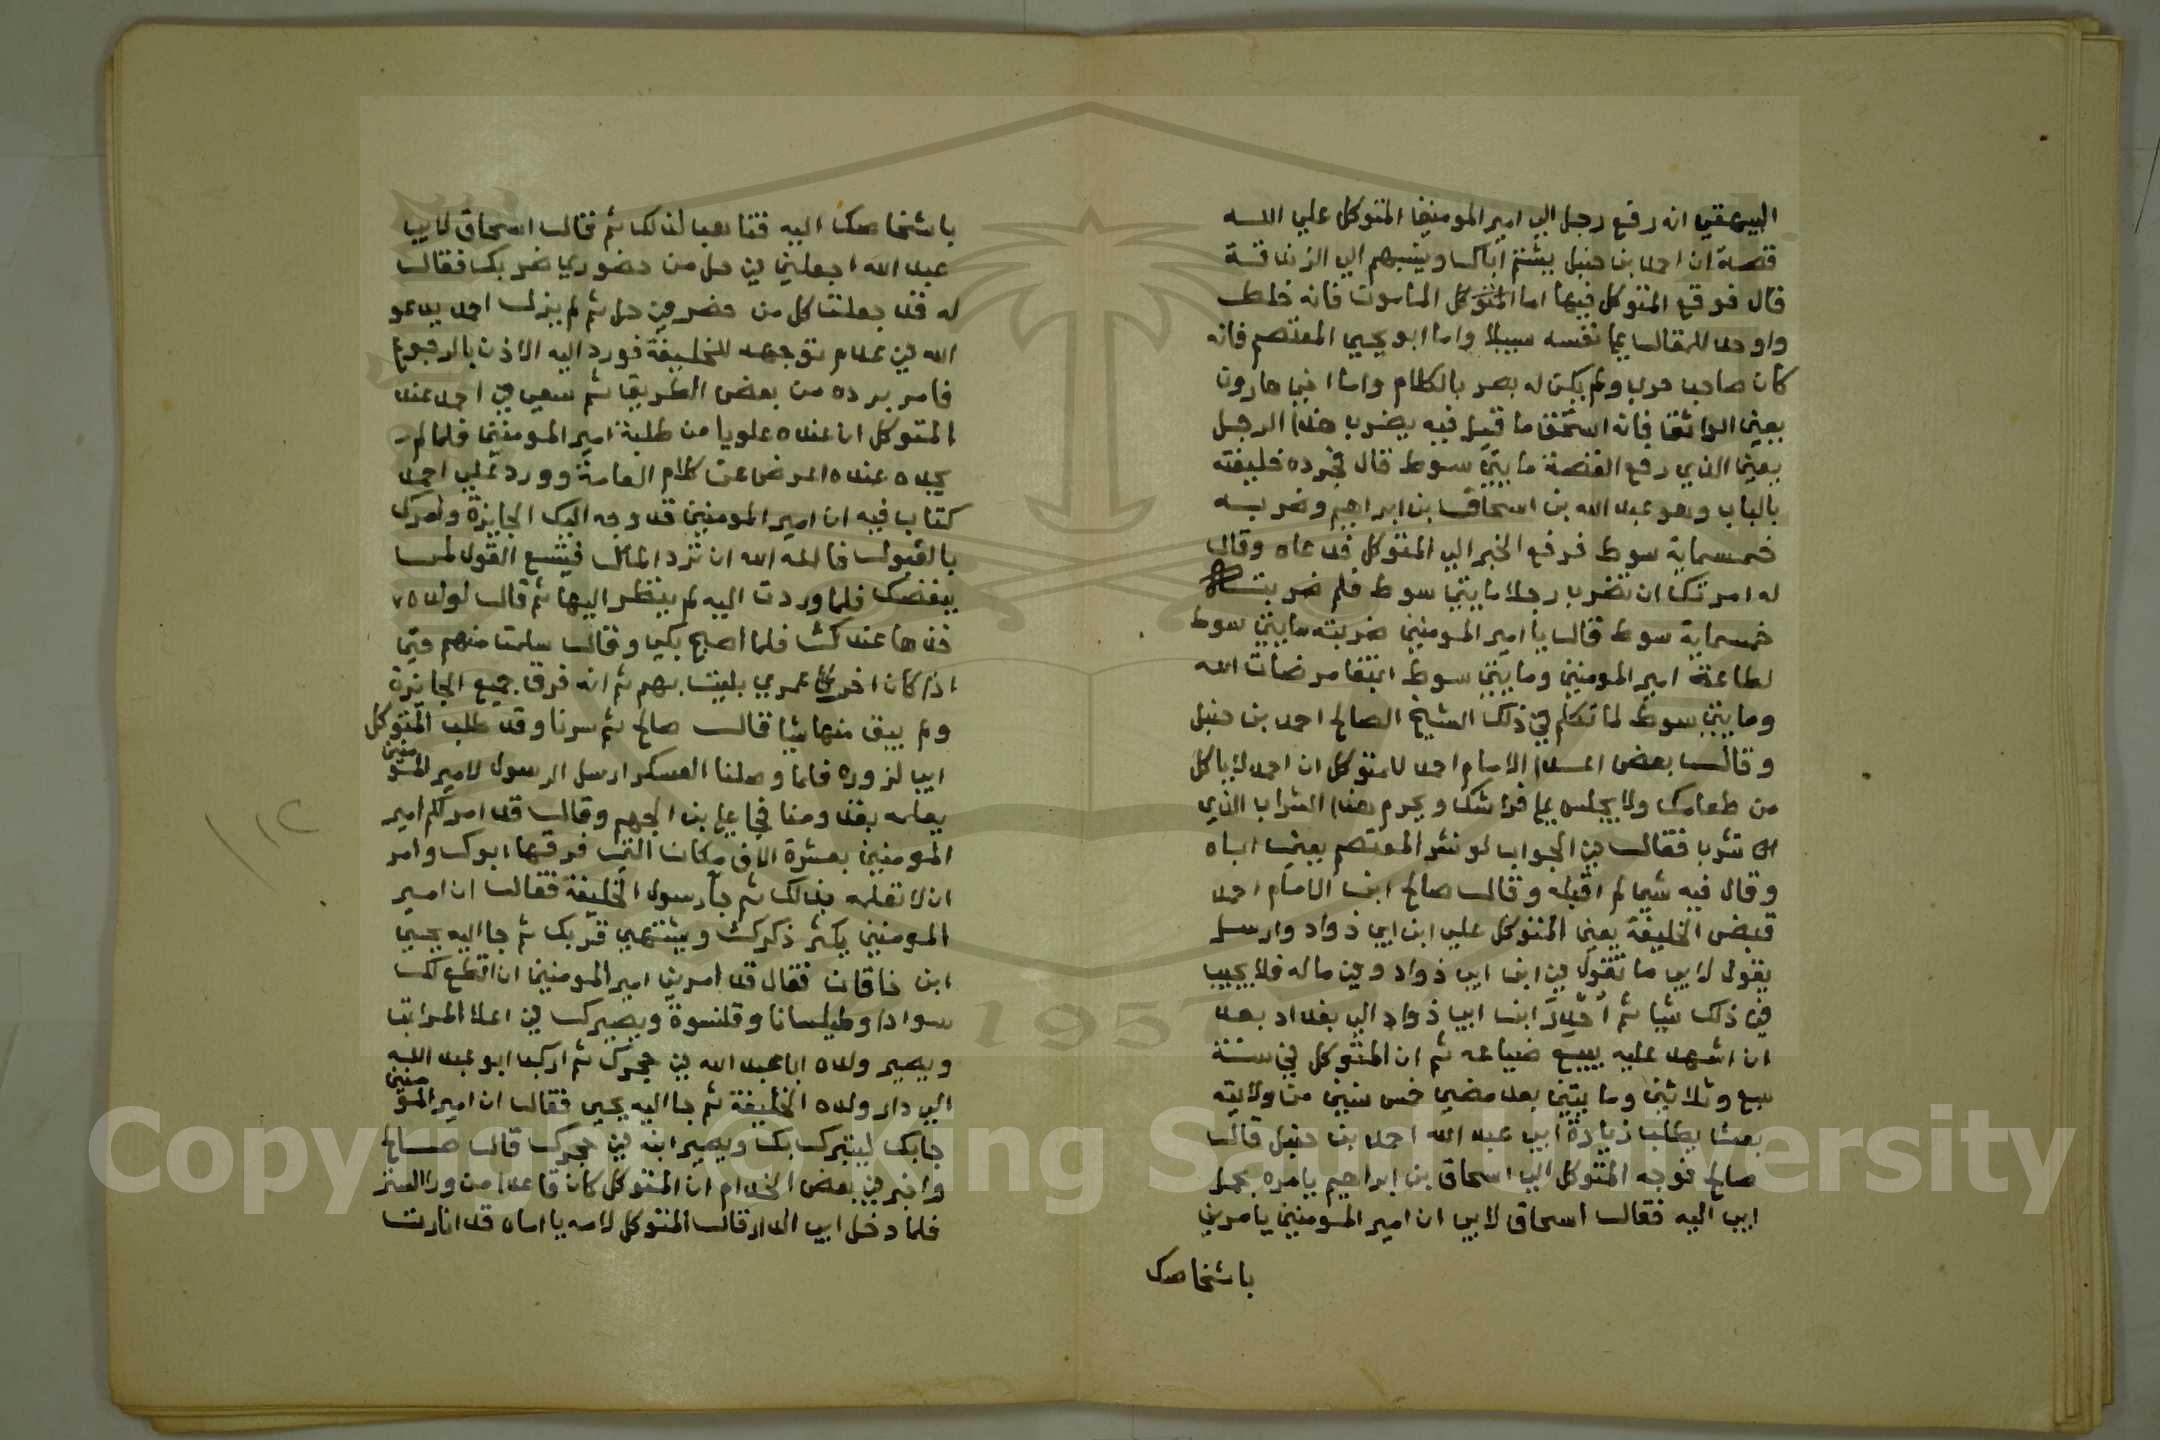 البيهقي انه رفع رجل الي امير المومنين المتوكل علي الله
قصة ان احمد بن حنبل يشتم اباك وينسبهم الي الزندقة
قال فوقع المتوكل فيها اما المامون فانه خلط
واوجد للمقال علي نفسه سبيلا واما ابو يحيي المعتصم فانه
كان صاحب حرب ولم يكن له بصر بالكلام واما اخي هارون
يعني الواثق فانه استحق ما قيل فيه يضرب هذا الرجل
يعني الذي رفع القصة مايتي سوط قال فجرده خليفته
بالباب وهو عبد الله بن اسحاق بن ابراهيم وضربه
خمسماية سوط فرفع الخبر الي المتوكل فدعاه وقال
له امرتك ان تضرب رجلا مايتي سوط فلم ضربته
خمسماية سوط قال يا امير المومنين ضربته مايتي سوط
لطاعة امير المومنين ومايتي سوط ابتغا مرضات الله
ومايتي سوط لما تكلم في ذلك الشيخ الصالح احمد بن حنبل
وقال بعض اعدا الامام احمد للمتوكل ان احمد لا ياكل
من طعامك ولا يجلس علي فراشك ويحرم هذا الشراب الذي
تشرب فقال في الجواب لو نشر المعتصم يعني اباه
وقال فيه شيا لم اقبله وقال صالح ابن الامام احمد
قبض الخليفة يعني المتوكل علي ابن ابي ذواد وارسل
يقول لابي ما تقول في ابن ابي ذواد وفي ماله فلا يجيب
في ذلك شيا ثم احدر ابن ابي ذواد الي بغداد بعد
ان اشهد عليه ببيع ضياعه ثم ان المتوكل في سنة
سبع وثلاثين ومايتين بعد مضي خمس سنين من ولايته
بعث يطلب زيارة ابي عبد الله احمد بن حنبل قال
صالح فوجه المتوكل الي اسحاق بن ابراهيم يامره بحمل
ابي اليه فقال اسحاق لابي ان امير المومنين يامرني
باشخاصك
باشخاصك اليه فتاهب لذلك ثم قال اسحاق لابي
عبد الله اجعلني في حل من حضوري ضربك فقال
له قد جعلت كل من حضر في حل ثم لم يزل احمد يدعو
الله في عدم توجهه للخليفة فورد اليه الاذن بالرجوع
فامر برده من بعض الطريق ثم سعي في احمد عند
المتوكل ان عنده علويا من طلبة امير المومنين فلما لم
يجده عنده اعرض عن كلام العامة وورد علي احمد
كتاب فيه ان امير المومنين قد وجه اليك الجايزة وامرك
بالقبول فالله الله ان ترد المال فيتسع القول لمن
يبغضك فلما وردت اليه لم ينظر اليها ثم قال لولده
خذها عندك فلما اصبح بكي وقال سلمت منهم حتي
اذا كان اخر عمري بليت بهم ثم انه فرق جميع الجايزة
ولم يبق منها شيا قال صالح ثم سرنا وقد طلب المتوكل
ابي لزوره فلما وصلنا العسكر ارسل الرسول لامير المومنين
يعلمه بقدومنا فجا علي بن الجهم وقال قد امر لكم امير
المومنين بعشرة الاف مكان التي فرقها ابوك وامر
ان لا تعلمه بذلك ثم جا رسول الخليفة فقال ان امير
المومنين يكثر ذكرك ويشتهي قربك ثم جا اليه يحيي
ابن خاقان فقال قد امرني امير المومنين ان اقطع لك
سوادا وطيلسانا وقلنسوة ويصيرك في اعلا المراتب
ويصير ولده ابا عبد الله في حجرك ثم اركب ابو عبد الله
الي دار ولده الخليفة ثم جا اليه يحيي فقال ان امير المومنين
جا بك ليتبرك بك ويصير ابنه في حجرك قال صالح
واخبرني بعض الخدام ان المتوكل كان قاعدا من ورا الستر
فلما دخل ابي الدار قال المتوكل لامه يا اماه قد انارت
١١٢
Copyright © King Saud University
1957